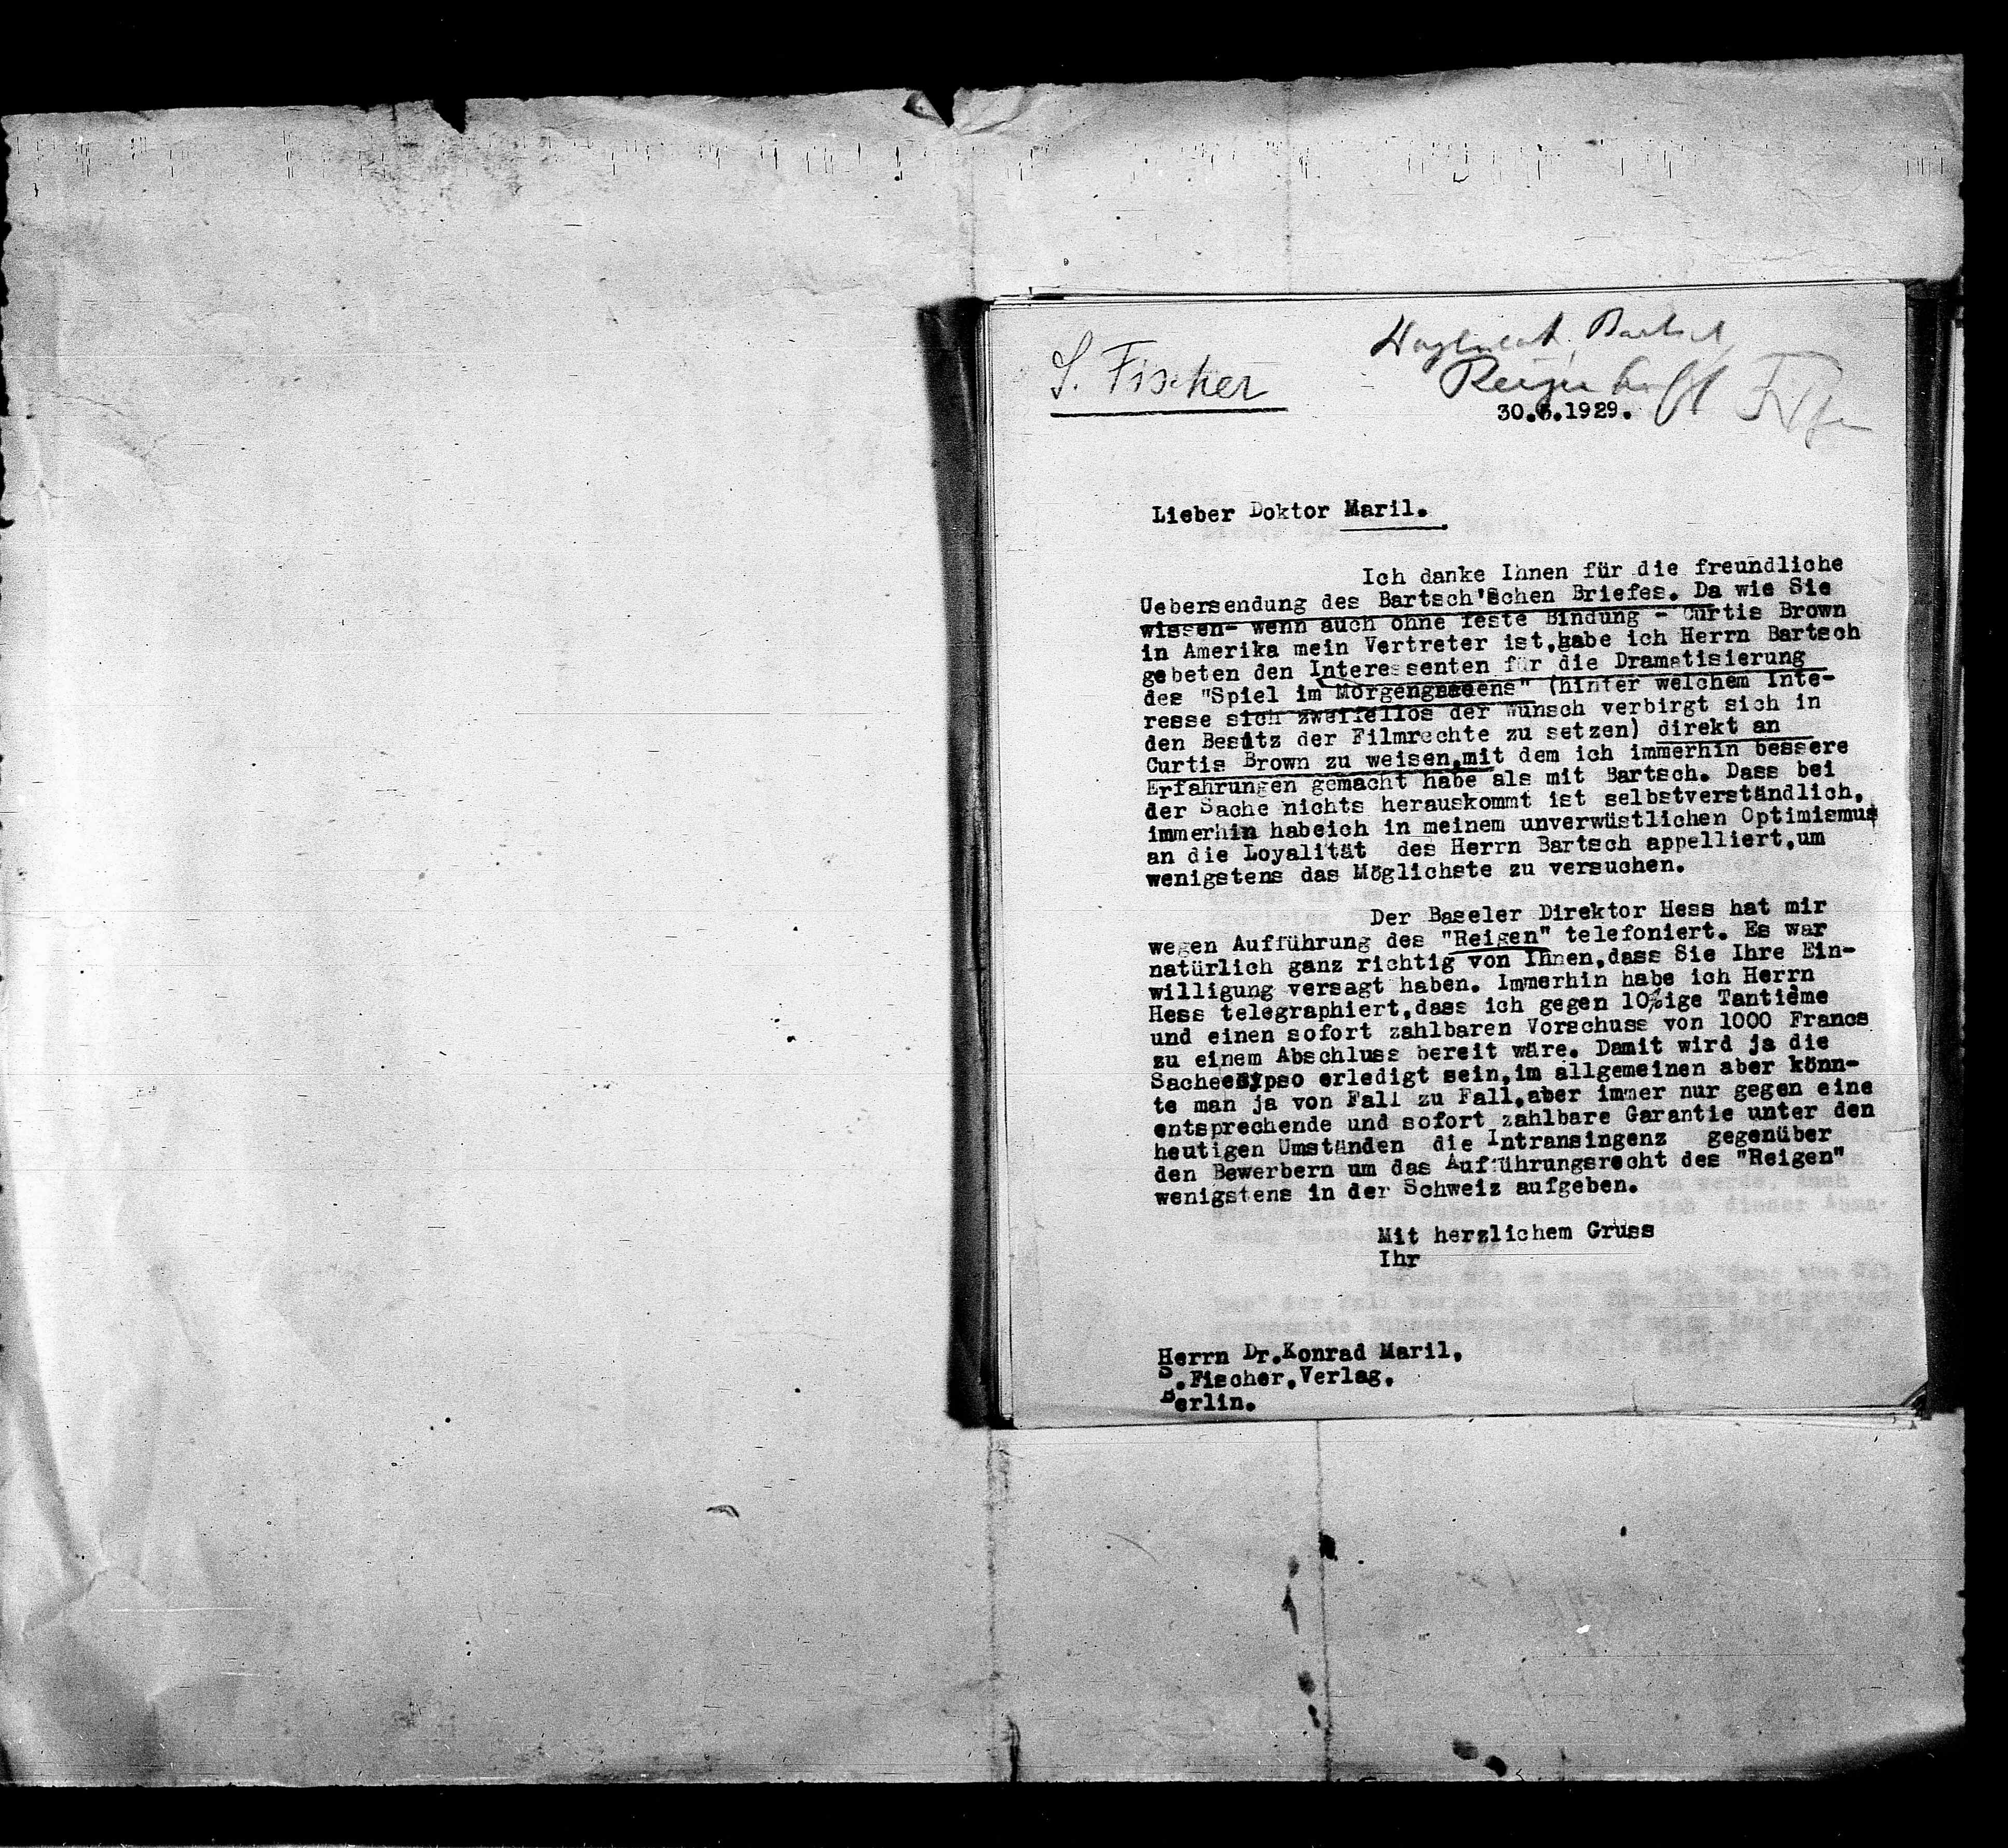 S. Fischer
Bartsch,
Reigen
30.6.1929.
Lieber Doktor Maril.
Ich danke Ihnen für die freundliche
Uebersendung des Bartsch'schen Briefes. Da wie Sie
wissen- wenn auch ohne feste Bindung - Curtis Brown
in Amerika mein Vertreter ist,habe ich Herrn Bartsch
gebeten den Interessenten für die Dramatisierung
des "Spiel im Morgengrauens" (hinter welchem Inte-
resse sich zweifellos der Wunsch verbirgt sich in
den Besitz der Filmrechte zu setzen) direkt an
Curtis Brown zu weisen,mit dem ich immerhin bessere
Erfahrungen gemacht habe als mit Bartsch. Dass bei
der Sache nichts herauskommt ist selbstverständlich,
immerhin habeich in meinem unverwüstlichen Optimismus
an die Loyalität des Herrn Bartsch appelliert,um
wenigstens das Möglichste zu versuchen.
Der Baseler Direktor Hess hat mir
wegen Aufführung des "Reigen" telefoniert. Es war
natürlich ganz richtig von Ihnen,dass Sie Ihre Ein-
willigung versagt haben. Immerhin habe ich Herrn
Hess telegraphiert,dass ich gegen 10%ige Tantième
und einen sofort zahlbaren Vorschuss von 1000 Francs
zu einem Abschluss bereit wäre. Damit wird ja die
Sache eo ipso erledigt sein,im allgemeinen aber könn-
te man ja von Fall zu Fall,aber immer nur gegen eine
entsprechende und sofort zahlbare Garantie unter den
heutigen Umständen die Intransingenz gegenüber
den Bewerbern um das Aufführungsrecht des "Reigen"
wenigstens in der Schweiz aufgeben.
Mit herzlichem Gruss
Ihr
Herrn Dr.Konrad Maril,
S.Fischer,Verlag,
Berlin.